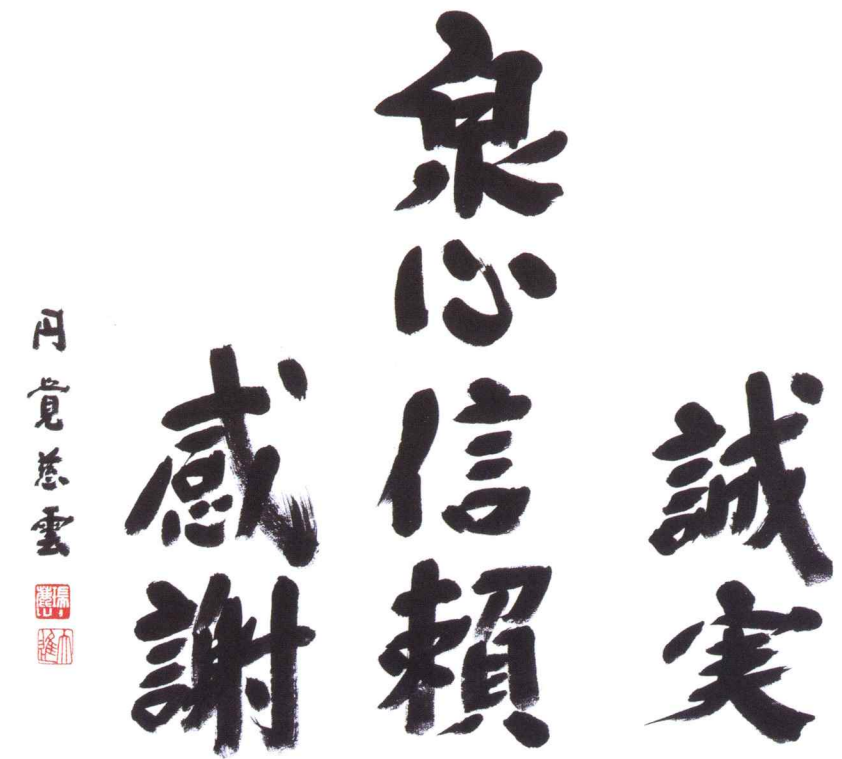 誠実
泉心信頼
感謝
円覚慈雲